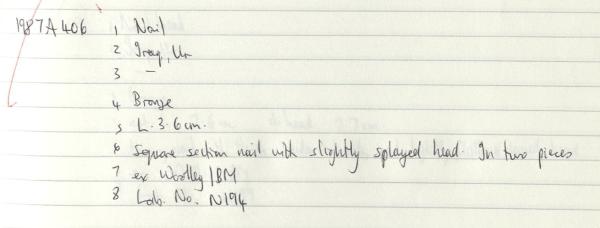 1987A406 1 Nail
2 Iraq, Ur
3 —
4 Bronze
5 L. 3.6cm.
6 Square section nail with slightly splayed head. In two pieces
7 ex Woolley/BM
8 Lab. No. N194